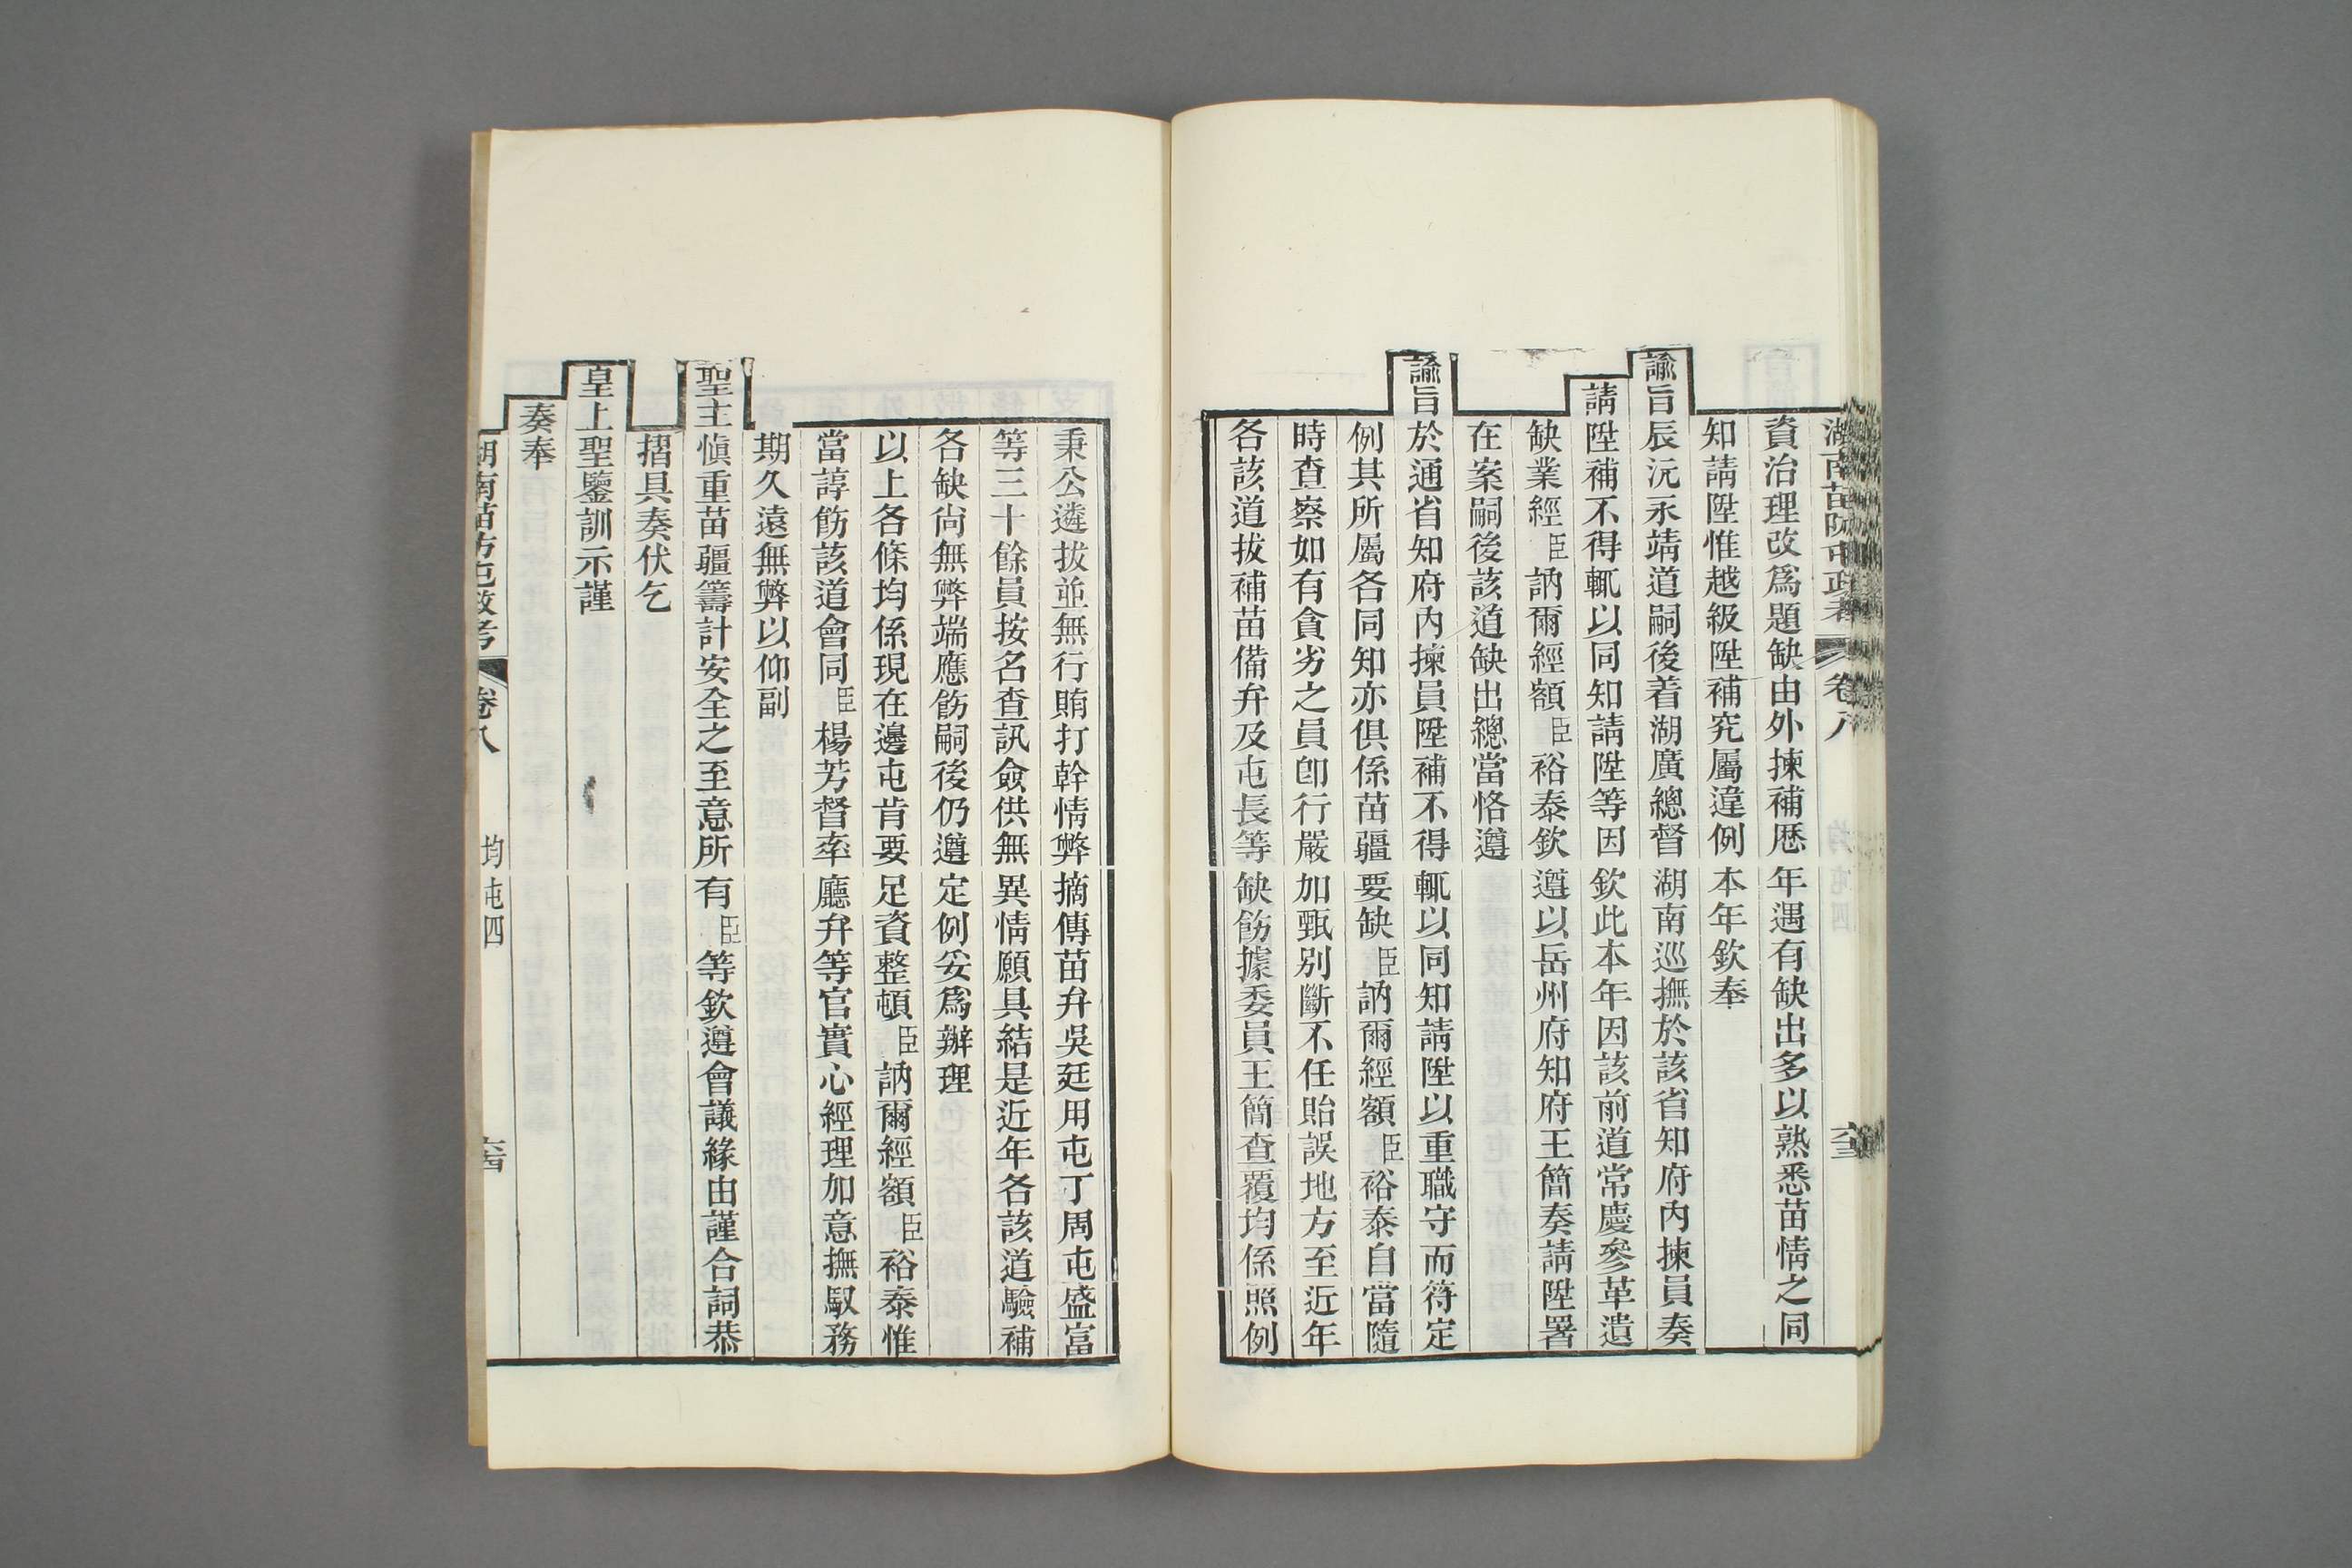 湖南苗防屯政考 卷八 六三
資治理改爲題缺由外揀補歷年遇有缺出多以熟悉苗情之同
知請陞惟越級陞補究屬違例本年欽奉
諭旨辰沅永靖道嗣後着湖廣總督湖南巡撫於該省知府內揀員奏
請陞補不得輒以同知請陞等因欽此本年因該前道常慶參革遺
缺業經臣訥爾經額臣裕泰欽遵以岳州府知府王簡奏請陞署
在案嗣後該道缺出總當恪遵
諭旨於通省知府內揀員陞補不得輒以同知請陞以重職守而符定
例其所屬各同知亦俱係苗疆要缺臣訥爾經額臣裕泰自當隨
時查察如有貪劣之員卽行嚴加甄別斷不任貽誤地方至近年
各該道拔補苗備弁及屯長等缺飭據委員王簡查覆均係照例
秉公遴拔並無行賄打幹情弊摘傳苗弁吳廷用屯丁周屯盛富
等三十餘員按名查訊僉供無異情願具結是近年各該道驗補
各缺尙無弊端應飭嗣後仍遵定例妥爲辦理
以上各條均係現在邊屯肯要足資整頓臣訥爾經額臣裕泰惟
當諄飭該道會同臣楊芳督率廳弁等官實心經理加意撫馭務
期久遠無弊以仰副
聖主愼重苗疆籌計安全之至意所有臣等欽遵會議緣由謹合詞恭
摺具奏伏乞
皇上聖鑒訓示謹
奏奉
湖南苗防屯政考 卷八 均屯四 六四